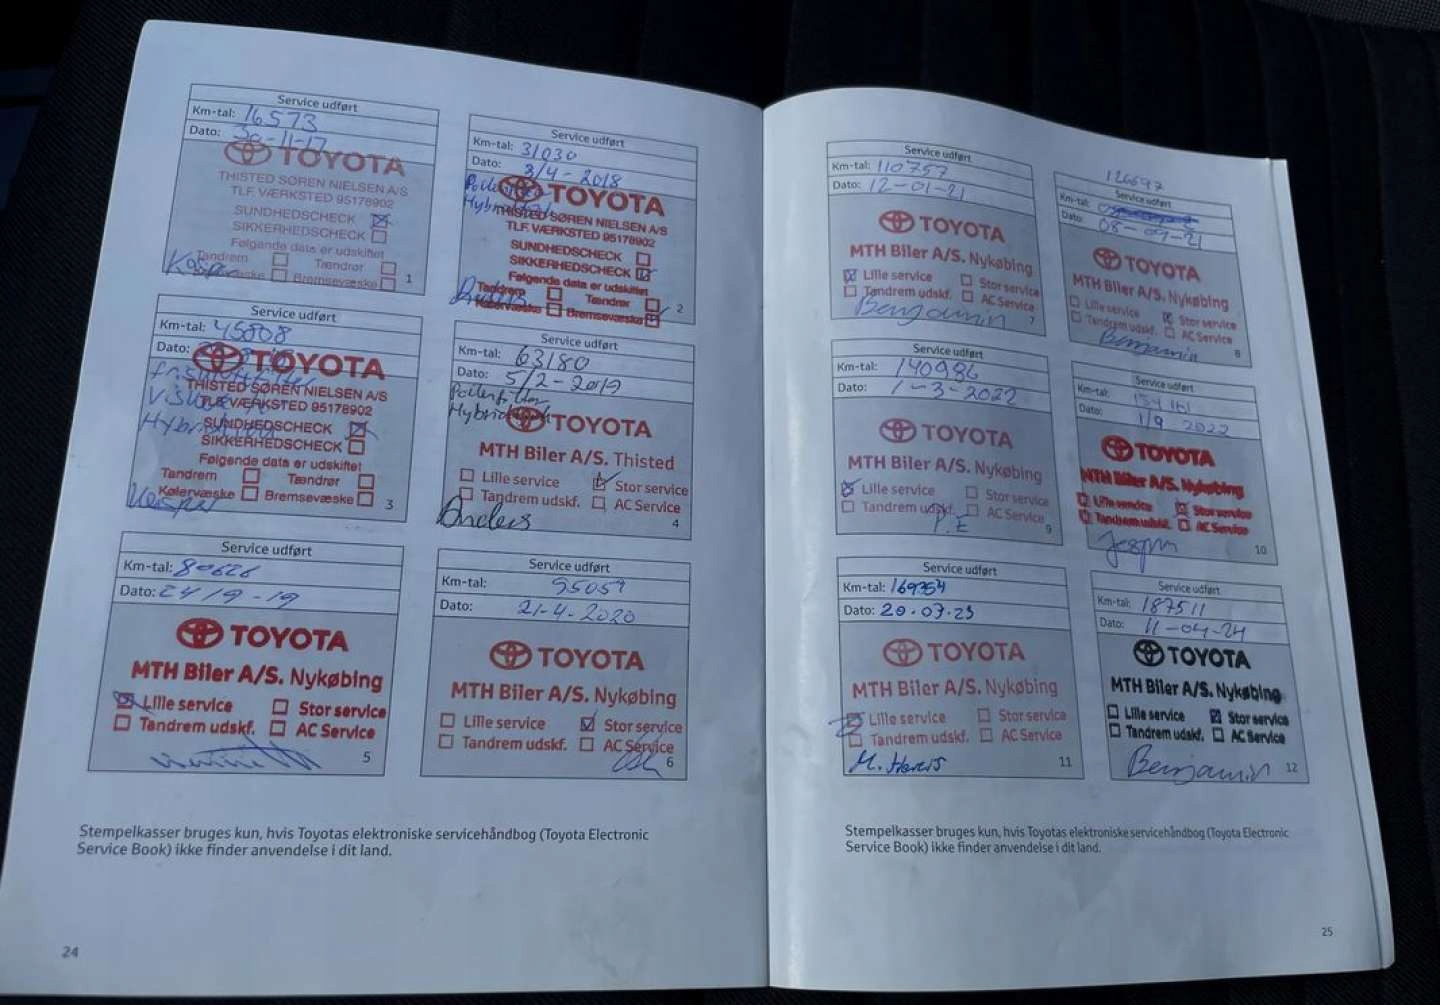 Service udført
Km-tal: 16573
Dato: 30-11-17
TOYOTA
THISTED SØREN NIELSEN A/S
TLF. VÆRKSTED 95178902
SUNDHEDSCHECK
SIKKERHEDSCHECK
Følgende data er udskiftet
Tandrem Tændrør
Kølervæske Bremsevæske
1
Service udført
Km-tal: 31030
Dato: 3/4-2018
TOYOTA
THISTED SØREN NIELSEN A/S
TLF. VÆRKSTED 95178902
SUNDHEDSCHECK
SIKKERHEDSCHECK
Følgende data er udskiftet
Tandrem Tændrør
Kølervæske Bremsevæske
Anders
2
Service udført
Km-tal: 45808
Dato:
TOYOTA
THISTED SØREN NIELSEN A/S
TLF. VÆRKSTED 95178902
SUNDHEDSCHECK
SIKKERHEDSCHECK
Følgende data er udskiftet
Tandrem Tændrør
Kølervæske Bremsevæske
3
Service udført
Km-tal: 63180
Dato: 5/2-2019
TOYOTA
MTH Biler A/S. Thisted
Lille service Stor service
Tandrem udskf. AC Service
Anders
4
Service udført
Km-tal: 80626
Dato: 24/9-19
TOYOTA
MTH Biler A/S. Nykøbing
Lille service Stor service
Tandrem udskf. AC Service
5
Service udført
Km-tal: 95059
Dato: 21-4-2020
TOYOTA
MTH Biler A/S. Nykøbing
Lille service Stor service
Tandrem udskf. AC Service
6
Stempelkasser bruges kun, hvis Toyotas elektroniske servicehåndbog (Toyota Electronic
Service Book) ikke finder anvendelse i dit land.
24
Service udført
Km-tal: 110757
Dato: 12-01-21
TOYOTA
MTH Biler A/S. Nykøbing
Lille service Stor service
Tandrem udskf. AC Service
Benjamin
7
126697
Service udført
Km-tal:
Dato: 08-09-21
TOYOTA
MTH Biler A/S. Nykøbing
Lille service Stor service
Tandrem udskf. AC Service
Benjamin
8
Service udført
Km-tal: 140986
Dato: 1-3-2022
TOYOTA
MTH Biler A/S. Nykøbing
Lille service Stor service
Tandrem udskf. AC Service
P.E
9
Service udført
Km-tal:
Dato: 1/9 2022
TOYOTA
MTH Biler A/S. Nykøbing
Lille service Stor service
Tandrem udskf. AC Service
Jesper
10
Service udført
Km-tal: 169754
Dato: 20.03.23
TOYOTA
MTH Biler A/S. Nykøbing
Lille service Stor service
Tandrem udskf. AC Service
11
Service udført
Km-tal: 187511
Dato: 11-04-24
TOYOTA
MTH Biler A/S. Nykøbing
Lille service Stor service
Tandrem udskf. AC Service
Benjamin
12
Stempelkasser bruges kun, hvis Toyotas elektroniske servicehåndbog (Toyota Electronic
Service Book) ikke finder anvendelse i dit land.
25